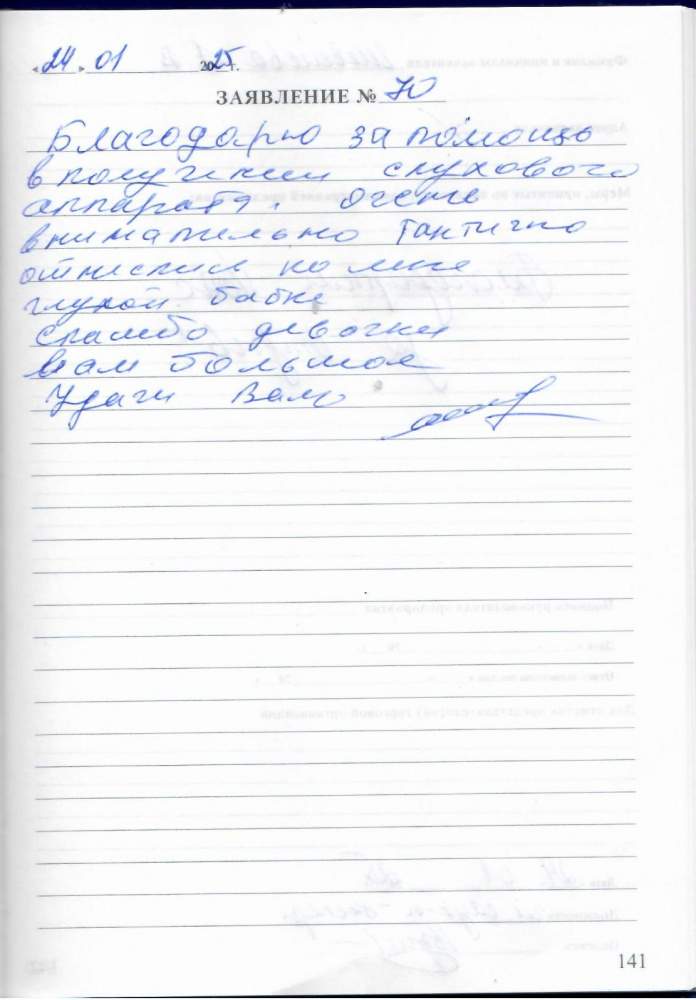 «24» 01 2025 г.
ЗАЯВЛЕНИЕ № 70
Благодарю за помощь
в получении слухового
аппарата. очень
внимательно тактично
отнеслись ко мне
глухой бабке
спасибо девочки
вам большое
Удачи Вам
141